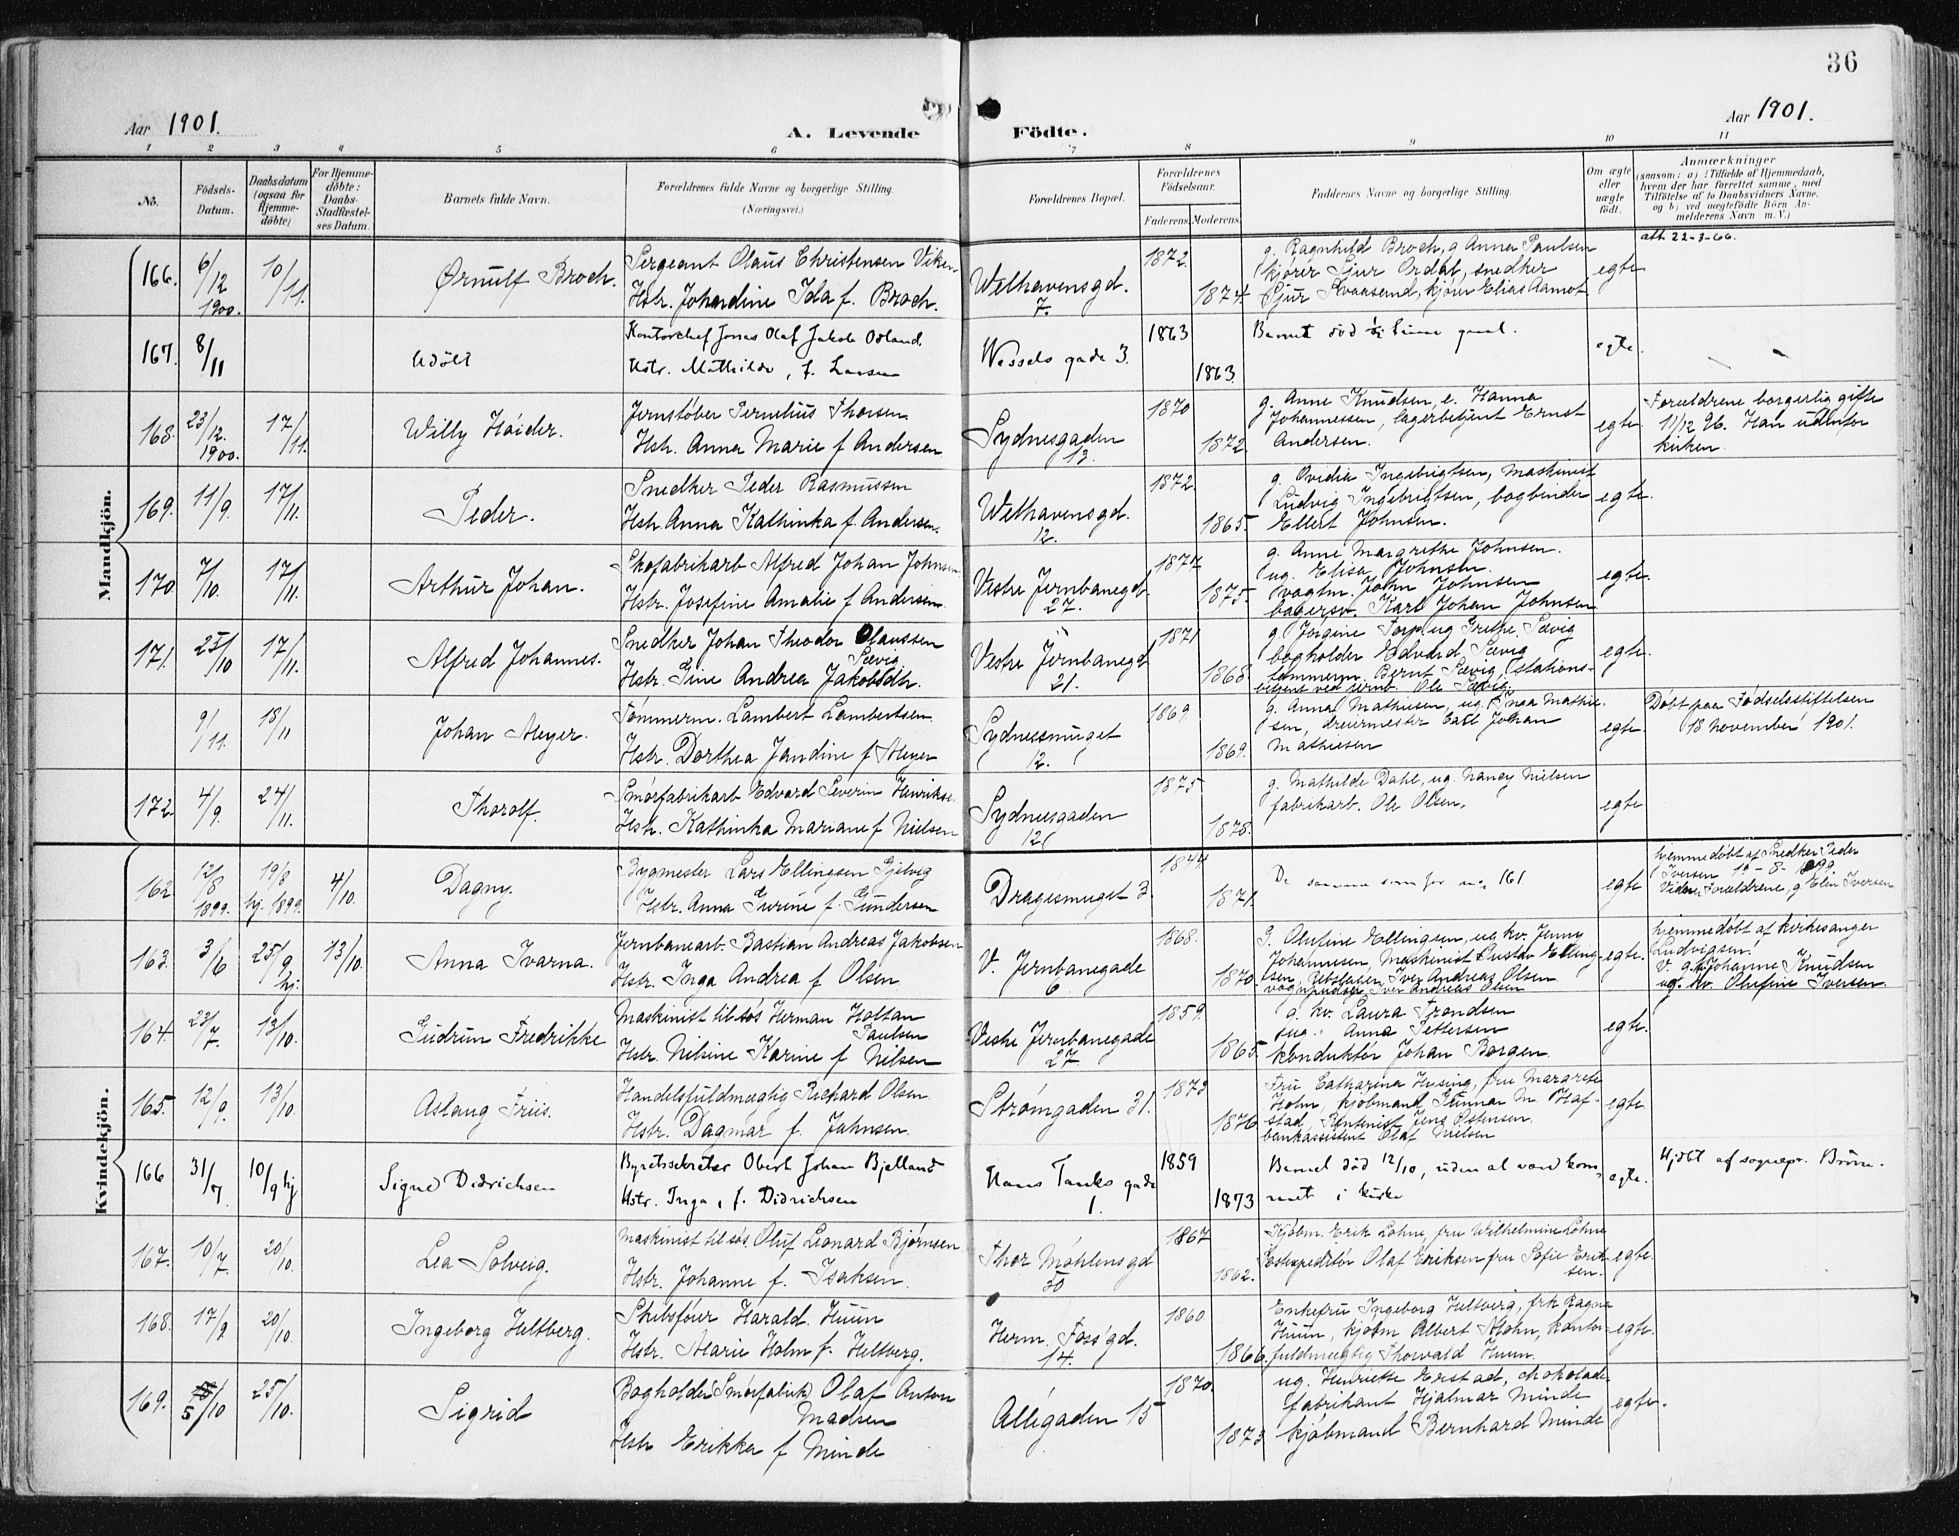 36
Aar 1901.
A. Levende
Födte.
Aar 1901.
1 2 3 4 5 6 7 8 9 10 11
No.
Födsels-
Datum.
Daabsdatum
(ogsaa for
Hjemme-
döbte)
For Hjemme-
döbte:
Daabs-
Stadfæstel-
ses Datum.
Barnets fulde Navn.
Forældrenes fulde Navne og borgerlige Stilling.
(Næringsvei.)
Forældrenes Bopæl.
Forældrenes
Födselsaar.
Faderens Moderens
Faddernes Navne og borgerlige Stilling.
Om ægte
eller
uægte
födt.
Anmærkninger
(saasom: a) i Tilfælde af Hjemmedaab,
hvem der har forrettet samme, med
Tilföielse af to Daabsvidners Navne.
og b) ved uægtefödte Börn An-
melderens Navn m. V.)
Mandkjön.
166. 6/12 1900. 10/11. Ørnulf Broch.
Sergeant Olaus Christensen Viken
Hstr. Johandine Ida f. Broch.
Welhavensgd. 7.
1872. 1874.
g. Ragnhild Broch, g. Anna Paulsen
kjører Sjur Ordal, snedker
Sjur Kvaasernd, kjører Elias Aamot
egte
att 22-3-66.
167. 8/11 Udøbt
Kontorchef Jonas Olaf Jakob Odland.
Hstr. Mathilde, f. Larsen
Wessels gade 3.
1863 1863
Barnet død 1/2 time gml.
egte.
168. 23/12. 1900. 17/11. Willy Haider.
Jernstøber Pernelius Thorsen
Hstr. Anna Marie f Andersen
Sydnesgaden 13.
1870 1872.
g. Anne Knudsen, e. Hanna
Johannessen, lagerbetjent Ernst
Andersen.
egte
Forældrene borgerlig gifte
11/12 96. Han udenfor
kirken.
169. 11/9. 17/11. Peder.
Snedker Peder Rasmussen
Hstr. Anna Kathinka f. Andersen.
Welhavensgd. 12.
1872. 1865.
g. Ovidia Ingebrigtsen, maskinist
Ludvig Ingebrigtsen, bogbinder
Ellert Johnsen.
egte.
170. 7/10. 17/11. Arthur Johan.
Skofabrikarb Alfred Johan Johnsen
Hstr. Josefine Amalie f Andersen.
Vestre Jernbanegd. 27.
1877 1875.
g. Anne Margrethe Johnsen.
ug. Elisa Johnsen.
vogtm. John Johnsen
bagersv. Karl Johan Johnsen
egte.
171. 25/10 17/11. Alfred Johannes.
Snedker Johan Theodor Olaussen
Sævig
Hstr. Sine Andrea Jakobsdtr.
Vestre Jernbanegd 21.
1871 1868.
g. Jorgine Torp, ug Grethe Sævig
bogholder Edvard Sævig
tømmerm. Bernt Sævig, stations-
betjent ved jernb. Ole Sævig.
egte.
9/11. 18/11 Johan Meyer.
Tømmerm. Lambert Lambertsen
Hstr. Dorthea Jandine f Meyer
Sydnessmuget 12.
1869. 1869.
g. Anna Mathiesen, ug. Inga Mathie-
sen, dreiermester Carl Johan
Mathiesen
egte.
Døbt paa Fødselsstiftelsen
18 november 1901.
172. 4/9. 24/11. Thorolf.
Smørfabrikarb Edvard Severin Henriksen
Hstr. Kathinka Mariane f Nielsen
Sydnesgaden 12
1875 1878.
g. Mathilde Dahl, ug. Nancy Nielsen
fabrikarb. Ole Olsen.
egte
Kvindekjön.
162 12/8 1899. 19/8 hj. 1899. 4/10. Dagny.
Bygmester Lars Ellingsen Gjelvig
Hstr. Anna Gurine f. Gundersen
Dragesmuget 3.
1844 1871.
De samme som for no. 161
egte
hjemmedøbt af Snedker Peder
Iversen 19-8-1899.
Vidner Forældrene, g Elin Iversen
163. 3/6 25/9 hj. 13/10. Anna Ivarna.
Jernbanearb. Bastian Andreas Jakobsen
Hstr. Inga Andrea f Olsen
V. Jernbanegade 6.
1868. 1870.
G. Olufine Ellingsen, ug. kv. Jenny
Johannesen, Maskinist Gustav Elling-
sen, Iver Andreas Olsen
vognpudser Iver Andreas Olsen
egte.
hjemmedøbt af kirkesanger
Ludvigsen!
V. g. kv Johanne Knudsen
ug. kv. Olufine Iversen.
164. 23/7. 13/10. Gudrun Fredrikke
Maskinist til søs Herman Holtan
Paulsen
Hstr. Nilsine Karine f Nilsen
Vestre Jernbanegade 27.
1859. 1865.
g. kv. Laura Trondsen
ug. " Anna Pettersen
Konduktør Johan Borgen.
egte.
165. 12/9. 13/10. Aslaug Friis.
Handelsfuldmægtig Richard Olsen
Hstr. Dagmar f. Jahnsen.
Strømgaden 31.
1873 1876
Fru Catharina Husing, fru Margrete
Holm, kjøbmand Gunnar M Haf-
stad, Rentenist Jens Ostensen.
bankassistent Olaf Nielsen
egte.
166 31/7. 10/9 hj Signe Didrichsen
Byretssekretær Obert Johan Bjelland
Hstr. Inga, f. Didrichsen
Hans Tanks gade 1.
1859 1873
Barnet død 12/10, uden at være kom-
met i kirke
egte.
Hjdøbt af sognepr. Bruun.
167. 10/7. 20/10. Lea Solveig.
Maskinist til søs Oluf Leonard Bjørnsen
Hstr. Johanne f. Isaksen.
Thor Møhlensgd 30
1867 1862.
Kjøbm. Erik Lohne, fru Wilhelmine Lohne
Postexpeditør Olaf Eriksen fru Sofie Erik-
sen.
egte.
168. 17/9 20/10. Ingeborg Heltberg.
Skibsfører Harald Huun
Hstr. Marie Holm f. Heltberg.
Herm. Foss'gd. 14.
1860 1866.
Enkefru Ingeborg Heltberg, frk Ragna
Huun, kjøbm Albert Mohn, kontor-
fuldmægtig Thorvald Huun.
egte.
169. 5/10 25/10. Sigrid
Bogholder (Smørfabrik) Olaf Anton
Madsen
Hstr Erikka f Minde
Allégaden 15
1870. 1873
ug. Henriette Erstad, chokolade-
fabrikant Hjalmar Minde
kjøbmand Bernhard Minde
egte.